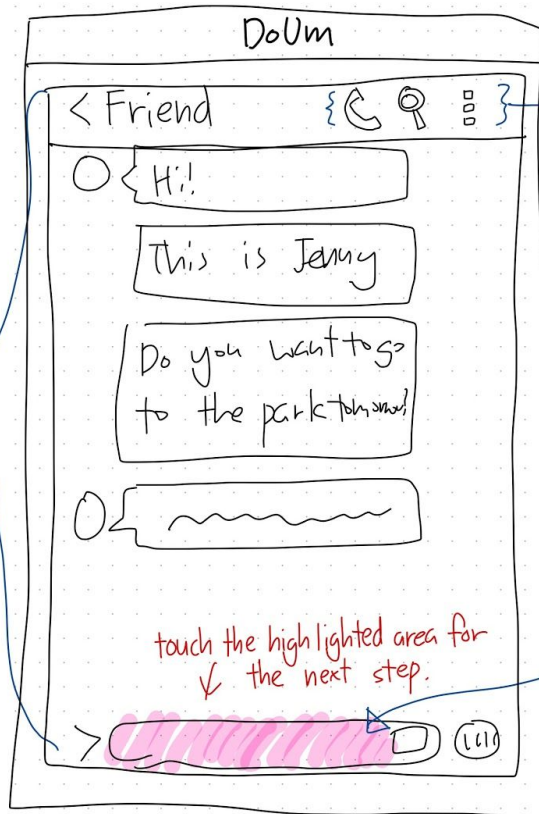 DoUm
< Friend
Hi!
This is Jenny
Do you want to go
to the park tomorrow?
touch the highlighted area for
the next step.
>